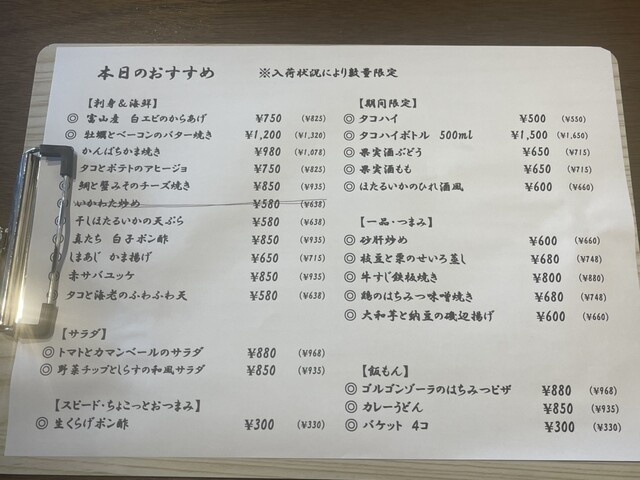 本日のおすすめ ※入荷状況により数量限定
【刺身＆海鮮】
◎ 富山産 白エビのからあげ ¥750 (¥825)
◎ 牡蠣とベーコンのバター焼き ¥1,200 (¥1,320)
かんぱちかま焼き ¥980 (¥1,078)
タコとポテトのアヒージョ ¥750 (¥825)
鯛と蟹みそのチーズ焼き ¥850 (¥935)
いかわた炒め ¥580 (¥638)
◎ 干しほたるいかの天ぷら ¥580 (¥638)
◎ 真たち 白子ポン酢 ¥850 (¥935)
しまあじ かま揚げ ¥650 (¥715)
赤サバユッケ ¥850 (¥935)
タコと海老のふわふわ天 ¥580 (¥638)
【サラダ】
◎ トマトとカマンベールのサラダ ¥880 (¥968)
◎ 野菜チップとしらすの和風サラダ ¥850 (¥935)
【スピード・ちょこっとおつまみ】
◎ 生くらげポン酢 ¥300 (¥330)
【期間限定】
◎ タコハイ ¥500 (¥550)
◎ タコハイボトル 500ml ¥1,500 (¥1,650)
◎ 果実酒ぶどう ¥650 (¥715)
◎ 果実酒もも ¥650 (¥715)
◎ ほたるいかのひれ酒風 ¥600 (¥660)
【一品・つまみ】
◎ 砂肝炒め ¥600 (¥660)
◎ 枝豆と栗のせいろ蒸し ¥680 (¥748)
◎ 牛すじ鉄板焼き ¥800 (¥880)
◎ 鶏のはちみつ味噌焼き ¥680 (¥748)
◎ 大和芋と納豆の磯辺揚げ ¥600 (¥660)
【飯もん】
◎ ゴルゴンゾーラのはちみつピザ ¥880 (¥968)
◎ カレーうどん ¥850 (¥935)
◎ バケット 4コ ¥300 (¥330)